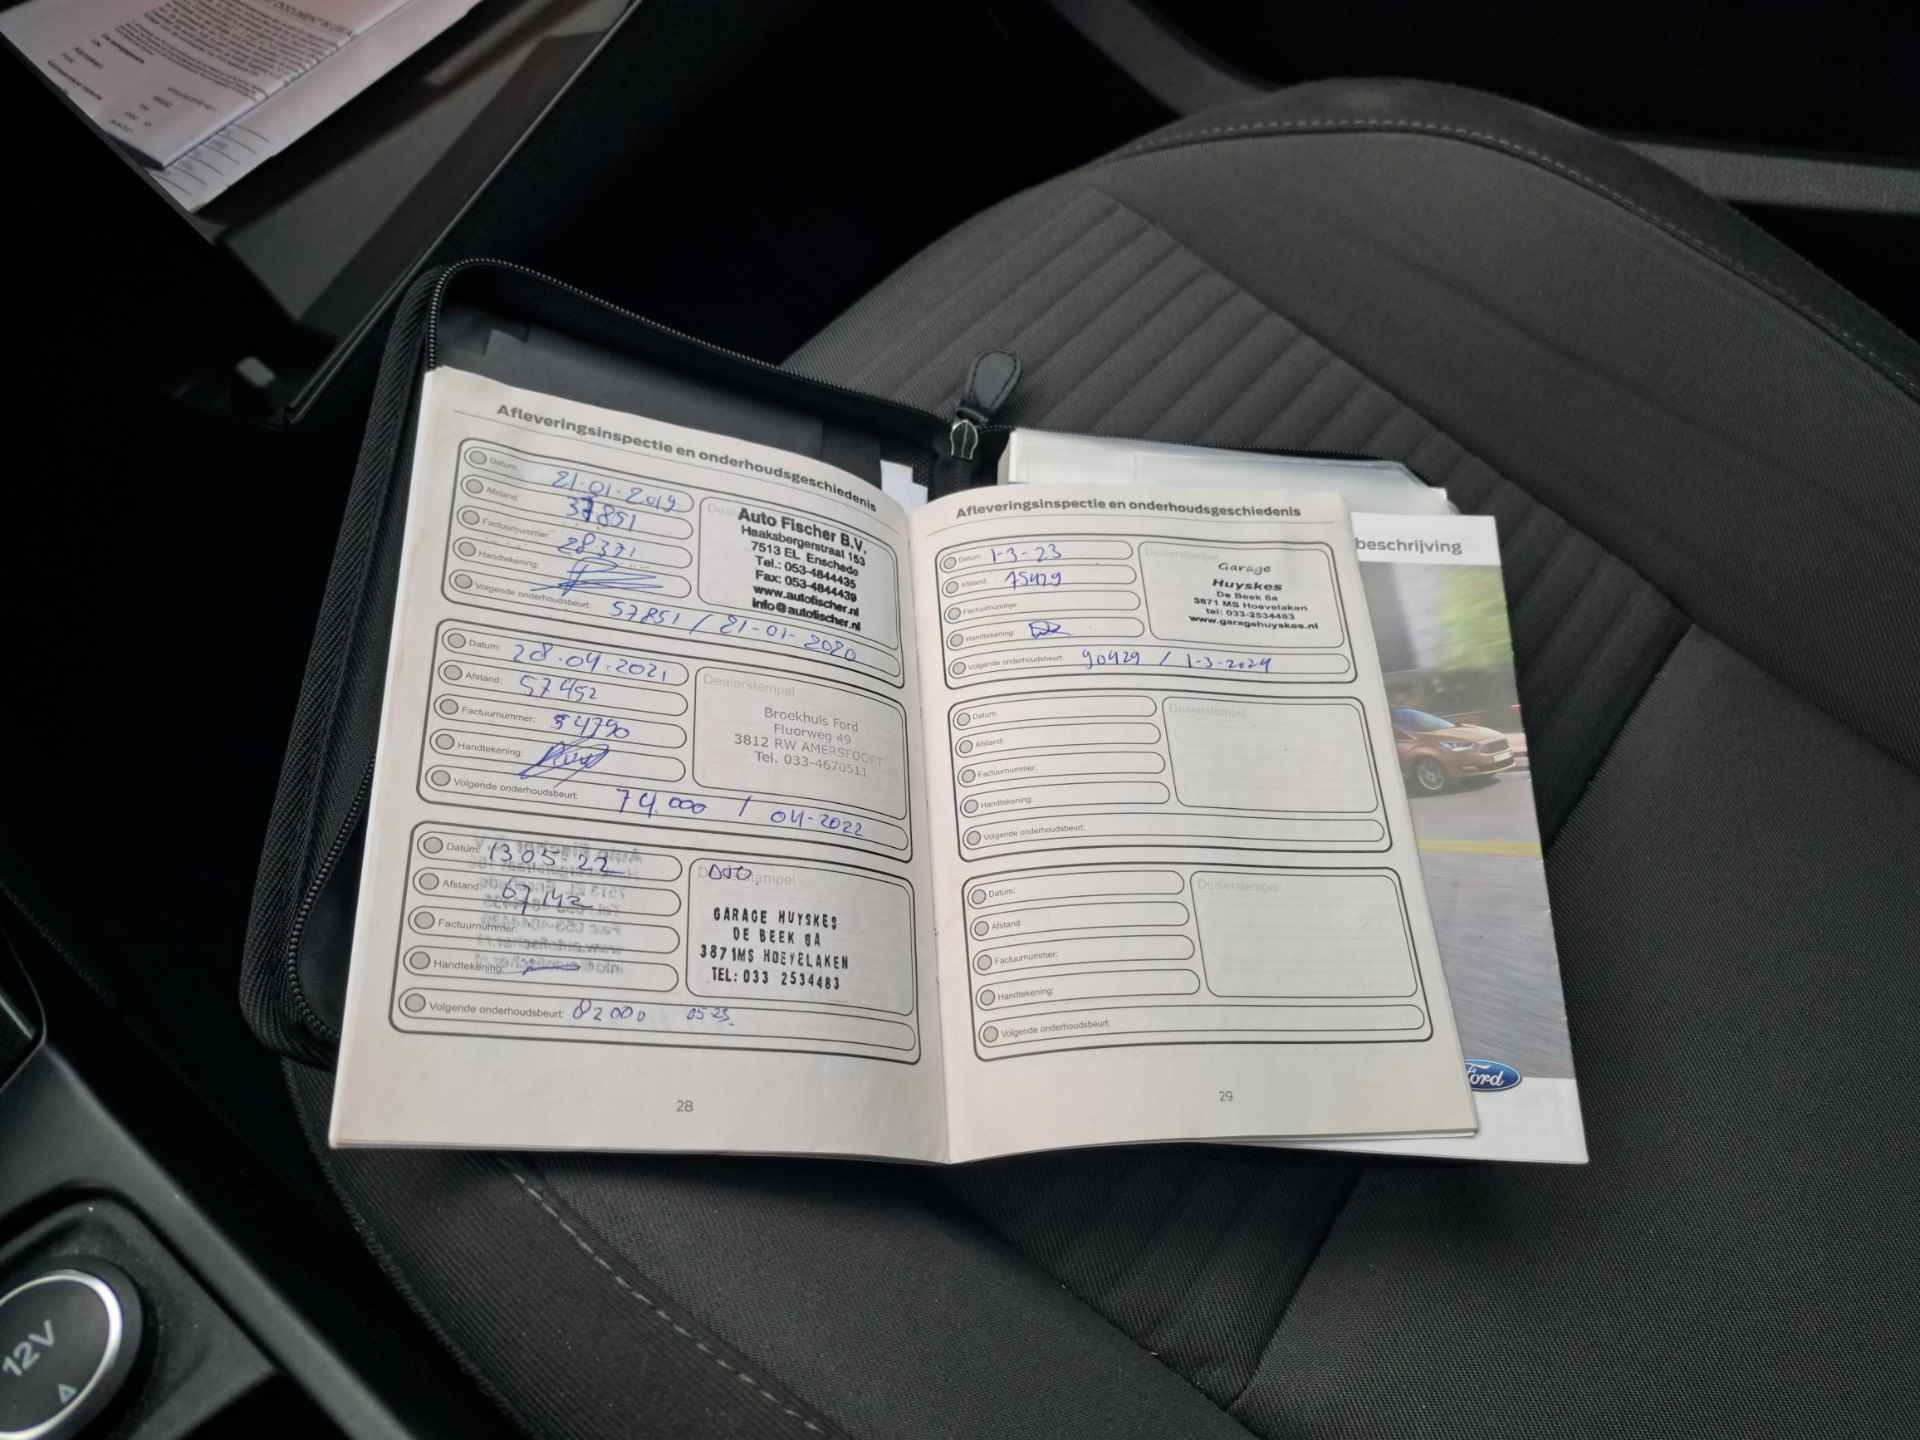 Afleveringsinspectie en onderhoudsgeschiedenis
Datum: 21-01-2019
Afstand: 37851
Factuurnummer: 28371
Handtekening:
Volgende onderhoudsbeurt: 57851 / 21-01-2020
Auto Fischer B.V.
Haaksbergerstraat 153
7513 EL Enschede
Tel.: 053-4844435
Fax: 053-4844439
www.autofischer.nl
info@autofischer.nl
Datum: 28-04-2021
Afstand: 57452
Factuurnummer: 54790
Handtekening:
Volgende onderhoudsbeurt: 74.000 / 04-2022
Dealerstempel
Broekhuis Ford
Fluorweg 49
3812 RW AMERSFOORT
Tel. 033-4670511
Datum: 13 05 22
Afstand: 67142
Factuurnummer:
Handtekening:
Volgende onderhoudsbeurt: 82000 05-23.
Dealerstempel
GARAGE HUYSKES
DE BEEK 6A
3871MS HOEVELAKEN
TEL: 033 2534483
28
Afleveringsinspectie en onderhoudsgeschiedenis
Datum: 1-3-23
Afstand: 75429
Factuurnummer:
Handtekening:
Volgende onderhoudsbeurt: 90429 / 1-3-2024
Dealerstempel
Garage
Huyskes
De Beek 6a
3871 MS Hoevelaken
tel: 033-2534483
www.garagehuyskes.nl
Datum:
Afstand:
Factuurnummer:
Handtekening:
Volgende onderhoudsbeurt:
Dealerstempel
Datum:
Afstand:
Factuurnummer:
Handtekening:
Volgende onderhoudsbeurt:
Dealerstempel
29
beschrijving
Ford
12V